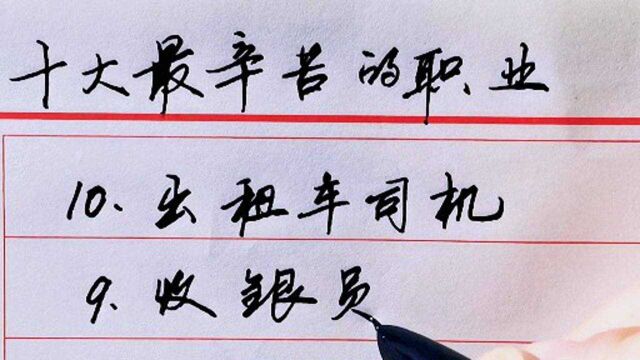 十大最辛苦的职业
10、出租车司机
9、收银员